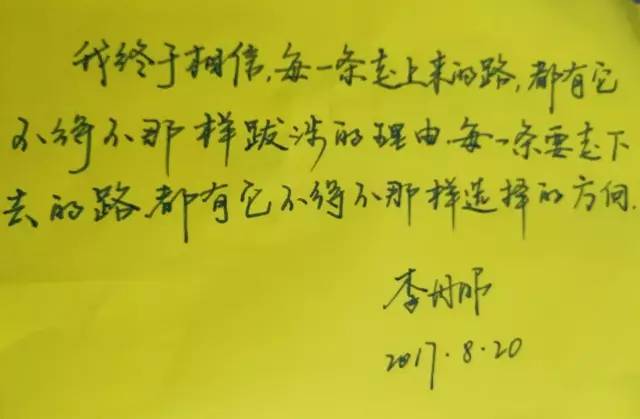 我终于相信,每一条走上来的路,都有它
不得不那样跋涉的理由.每一条要走下
去的路都有它不得不那样选择的方向.
李丹
2017.8.20